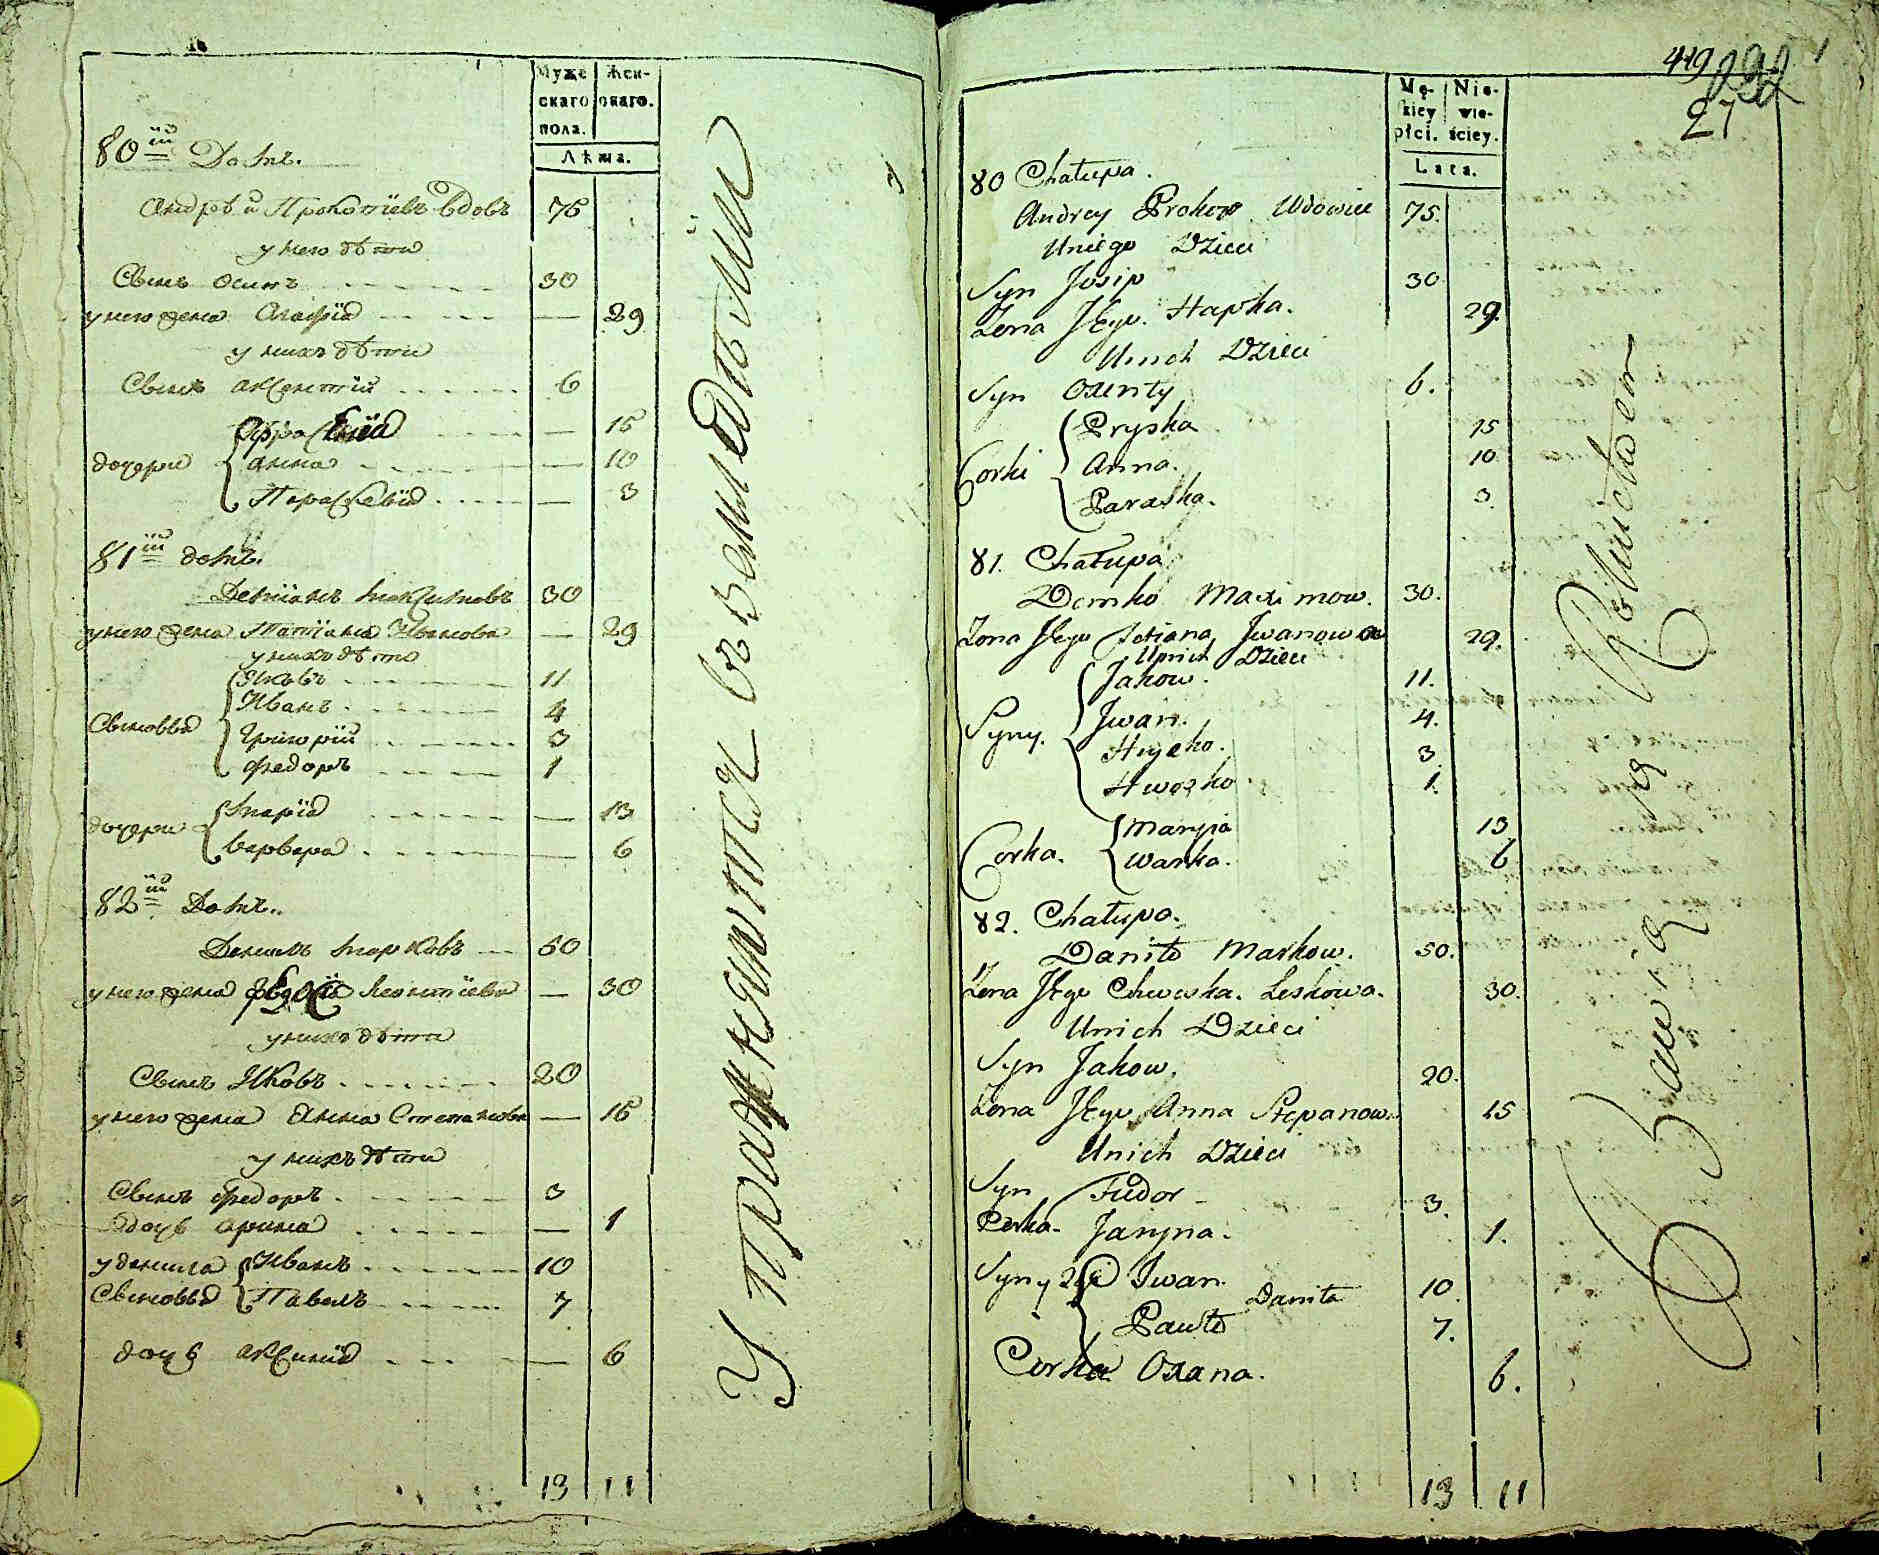 Муже
скаго
пола.
Жен-
скаго.
Лѣта.
80 ій Домъ.
Андрѣй Прокопіевъ вдовъ 75
у него дѣти
Сынъ Осипъ 30
у него жена Агафія — 29
у нихъ дѣти
Сынъ Аксентій 6
дочери Ефросинія — 15
Анна — 10
Параскевія — 3
81 ій домъ.
Деміанъ Максимовъ 30
у него жена Татіана Иванова — 29
у нихъ дѣти
Сыновья Яковъ 11
Иванъ 4
Григорій 3
Федоръ 1
дочери Марія — 13
Варвара — 6
82 ій Домъ.
Данилъ Марковъ — 50
у него жена Федосія Леонтіева — 30
у нихъ дѣти
Сынъ Яковъ 20
у него жена Анна Степанова — 15
у нихъ дѣти
Сынъ Федоръ 3
дочь Арина — 1
у Данила Иванъ 10
Сыновья Павелъ 7
дочь Аксинія — 6
13 11
Упражняются въ земледѣліи
419
292
27
Mę-
zkiey
płci.
Nie-
wie-
ściey.
Lata.
80 Chałupa.
Andrey Prokop Wdowiec 75.
Uniego Dzieci
Syn Josip 30
Żona Jego Hapka. 29.
Unich Dzieci
Syn Oxenty 6.
Corki Pryska 15
Anna. 10
Paraska. 3.
81. Chałupa
Demko Maximow. 30.
Żona Jego Tetiana Jwanowa 29.
Unich Dzieci
Syny. Jakow. 11.
Jwan. 4.
Hryćko. 3.
Hwozko 1.
Corka. Maryia 13
Warka. 6
82. Chałupa.
Daniło Markow. 50.
Żona Jego Chweska Leskowa. 30.
Unich Dzieci
Syn Jakow. 20.
Żona Jego Anna Stepanow. 15
Unich Dzieci
Syn Fudor 3.
Corka Jaryna. 1.
Syny Jwan 10
Daniła
Pawło 7.
Corka Oxana. 6.
13 11
Bawią się Rolnictwem